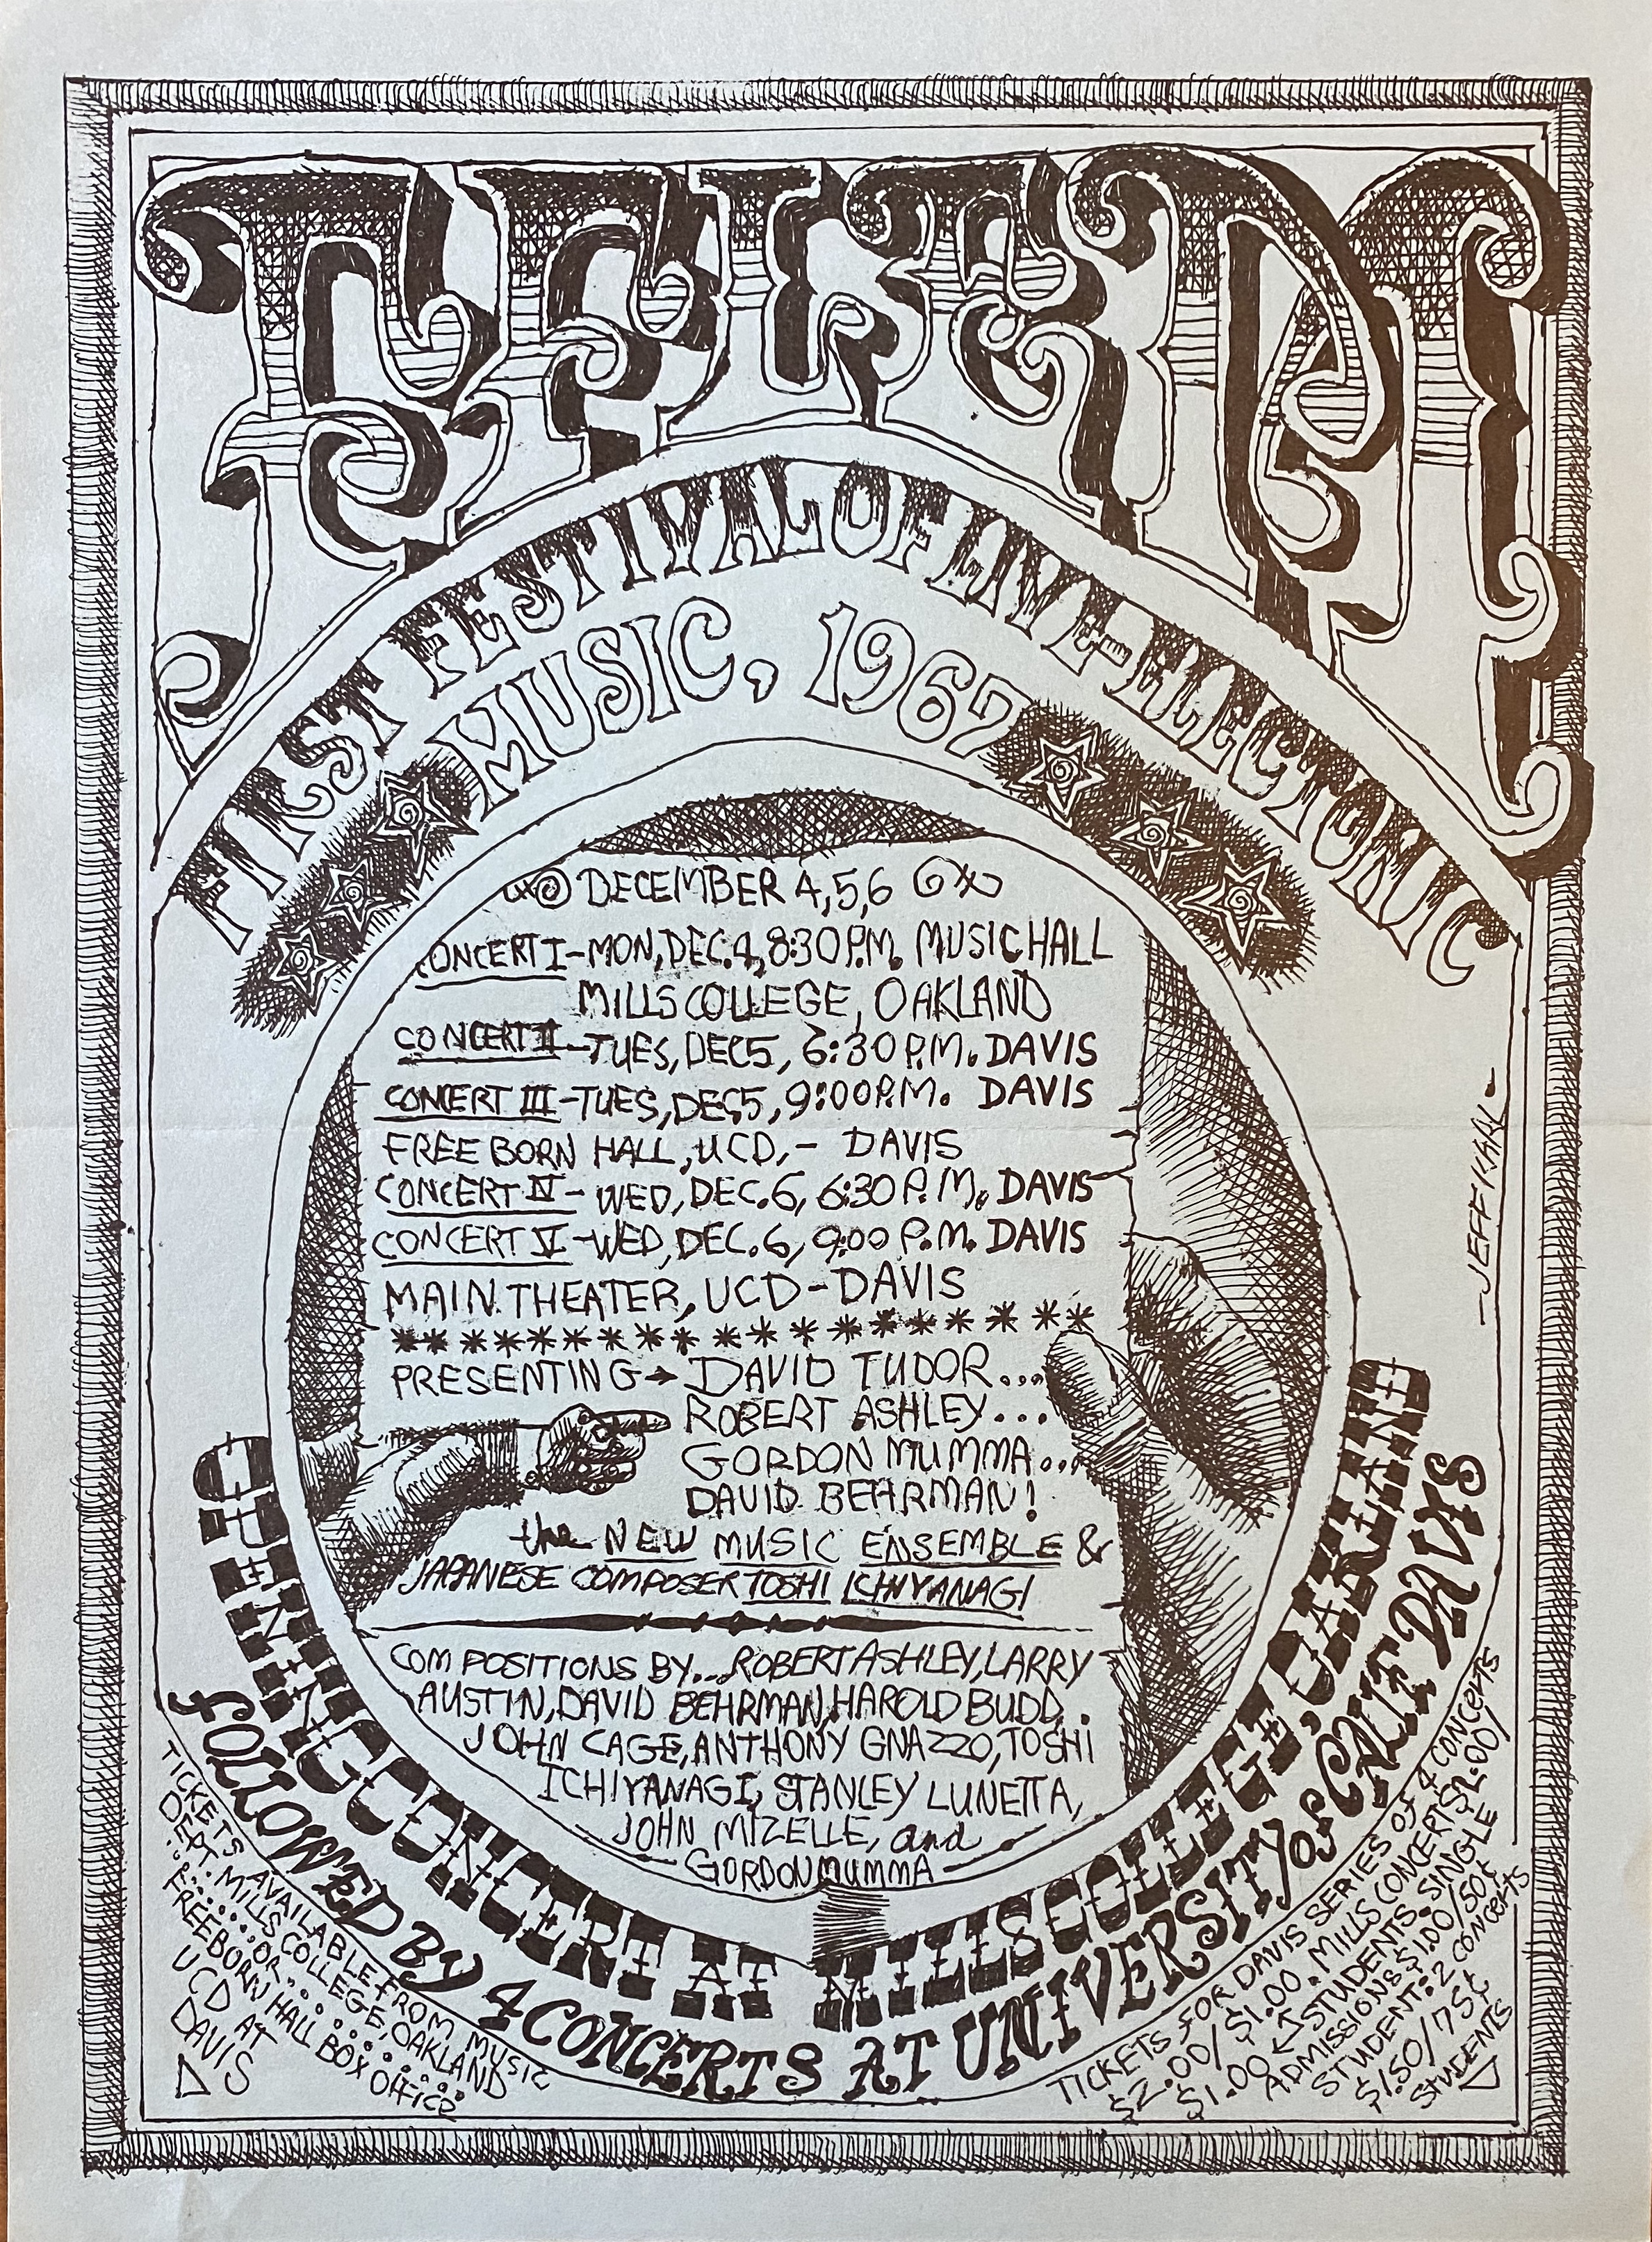 FFLEM
FIRST FESTIVAL OF LIVE-ELECTRONIC
MUSIC, 1967
DECEMBER 4, 5, 6
CONCERT I-MON, DEC. 4, 8:30 P.M. MUSIC HALL
MILLS COLLEGE, OAKLAND
CONCERT II-TUES, DEC 5, 6:30 P.M. DAVIS
CONCERT III-TUES, DEC 5, 9:00 P.M. DAVIS
FREE BORN HALL, UCD, - DAVIS
CONCERT IV- WED, DEC. 6, 6:30 P.M. DAVIS
CONCERT V-WED, DEC. 6, 9:00 P.M. DAVIS
MAIN THEATER, UCD-DAVIS
******************
PRESENTING→ DAVID TUDOR...
ROBERT ASHLEY...
GORDON MUMMA...
DAVID BEHRMAN!
the NEW MUSIC ENSEMBLE &
JAPANESE COMPOSER TOSHI ICHIYANAGI
COMPOSITIONS BY... ROBERT ASHLEY, LARRY
AUSTIN, DAVID BEHRMAN, HAROLD BUDD,
JOHN CAGE, ANTHONY GNAZZO, TOSHI
ICHIYANAGI, STANLEY LUNETTA,
JOHN MIZELLE, and
GORDON MUMMA
-JEFF
OPENING CONCERT AT MILLS COLLEGE, OAKLAND
FOLLOWED BY 4 CONCERTS AT UNIVERSITY of CALIF DAVIS
TICKETS AVAILABLE FROM MUSIC
DEPT. MILLS COLLEGE, OAKLAND
OR
FREEBORN HALL BOX OFFICE
UCD AT
DAVIS
TICKETS FOR DAVIS SERIES OF 4 CONCERTS
$2.00/$1.00. MILLS CONCERT $2.00/
$1.00 ← STUDENTS. SINGLE
ADMISSIONS $1.00/50¢
STUDENT: 2 CONCERTS
$1.50/75¢
STUDENTS